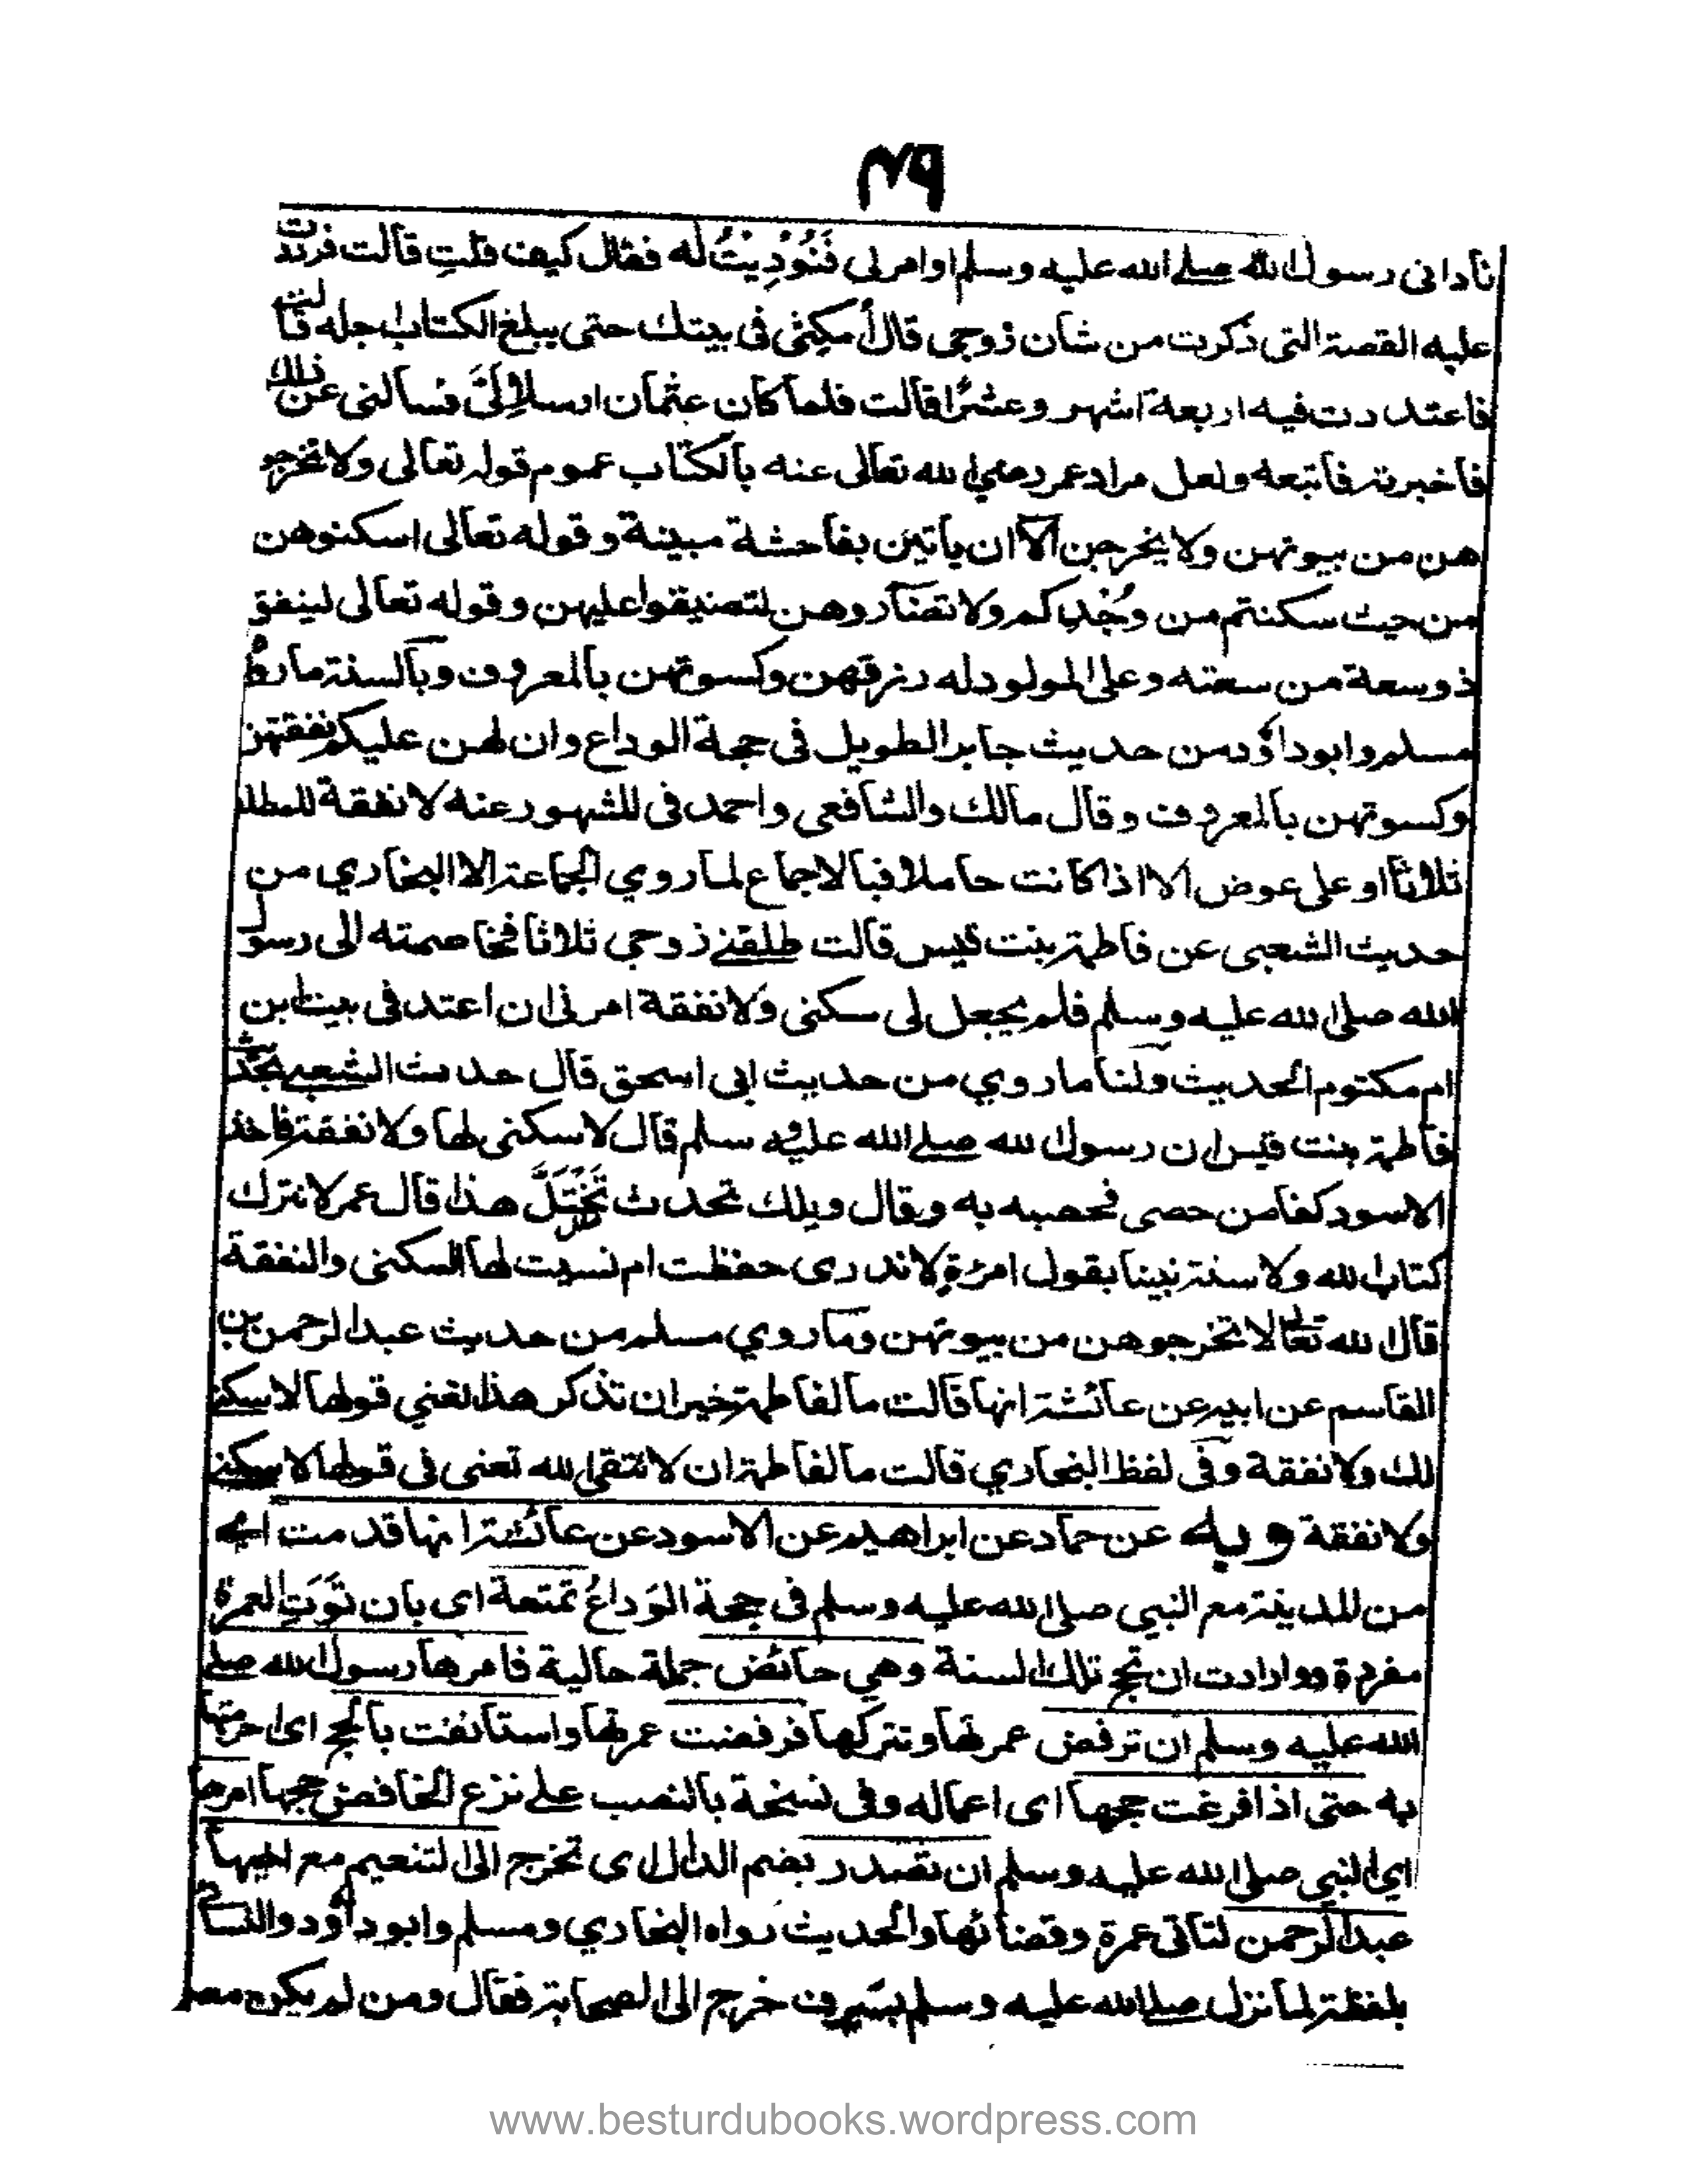 ۴۹
ناداني رسول الله صلى الله عليه وسلم او امر لي فَنُوْدِيْتُ له فقال كيف قلتِ قالت فرددت
عليه القصة التي ذكرت من شان زوجي قال اُمكِثي في بيتك حتى يبلغ الكتاب اجله قالت
فاعتددت فيه اربعة اشهر وعشرًا قالت فلما كان عثمان ارسل اِلَيَّ فسالني عن ذلك
فاخبرته فاتبعه ولعل مراد عمر رضي الله تعالى عنه بالكتاب عموم قوله تعالى ولا تخرجو
هن من بيوتهن ولا يخرجن الا ان ياتين بفاحشة مبينة وقوله تعالى اسكنوهن
من حيث سكنتم من وُجْدِكم ولا تضآروهن لتضيقوا عليهن وقوله تعالى لينفق
ذو سعة من سعته وعلى المولود له رزقهن وكسوتهن بالمعروف وبالسنة ما رواه
مسلم وابوداؤد من حديث جابر الطويل في حجة الوداع وان لهن عليكم نفقتهن
وكسوتهن بالمعروف وقال مالك والشافعي واحمد في المشهور عنه لا نفقة للمطلقة
ثلاثا او على عوض الا اذا كانت حاملا فبالاجماع لما روي الجماعة الا البخاري من
حديث الشعبي عن فاطمة بنت قيس قالت طلقني زوجي ثلاثا فخاصمته الى رسول
الله صلى الله عليه وسلم فلم يجعل لي سكنى ولا نفقة امرني ان اعتد في بيت ابن
ام مكتوم الحديث ولنا ما روي من حديث ابي اسحق قال حدث الشعبي بحديث
فاطمة بنت قيس ان رسول الله صلى الله عليه وسلم قال لا سكنى لها ولا نفقة فاخذ
الاسود كفا من حصى فحصبه به وقال ويلك تحدث هذا قال عمر لا نترك
كتاب الله ولا سنة نبينا بقول امرءة لا ندري حفظت ام نسيت لها السكنى والنفقة
قال الله تعالى لا تخرجوهن من بيوتهن وما روي مسلم من حديث عبد الرحمن بن
القاسم عن ابيه عن عائشة انها قالت ما لفاطمة خير ان تذكر هذا تعني قولها لا سكنى
لك ولا نفقة وفي لفظ البخاري قالت ما لفاطمة ان لا تتقي الله تعني في قولها لا سكنى
ولا نفقة وبه عن حماد عن ابراهيم عن الاسود عن عائشة انها قدمت اي
من المدينة مع النبي صلى الله عليه وسلم في حجة الوداع تمتعة اي بان نَوَتِ العمرة
مفردة وارادت ان تحج تلك السنة وهي حائض جملة حالية فامرها رسول الله صلى
الله عليه وسلم ان ترفض عمرتها وتتركها فرفضت عمرتها واستانفت بالحج اي احرمتها
به حتى اذا فرغت حجها اي اعماله وفي نسخة بالنصب على نزع الخافض حجها امرها
اي النبي صلى الله عليه وسلم ان تصدر بضم الدال اي تخرج الى التنعيم مع اخيها
عبد الرحمن لتاتي عمرة وقضائها والحديث رواه البخاري ومسلم وابو داؤد والنسائي
بلفظة لما نزل صلى الله عليه وسلم بسرف خرج الى الصحابة فقال ومن لم يكن معه
www.besturdubooks.wordpress.com